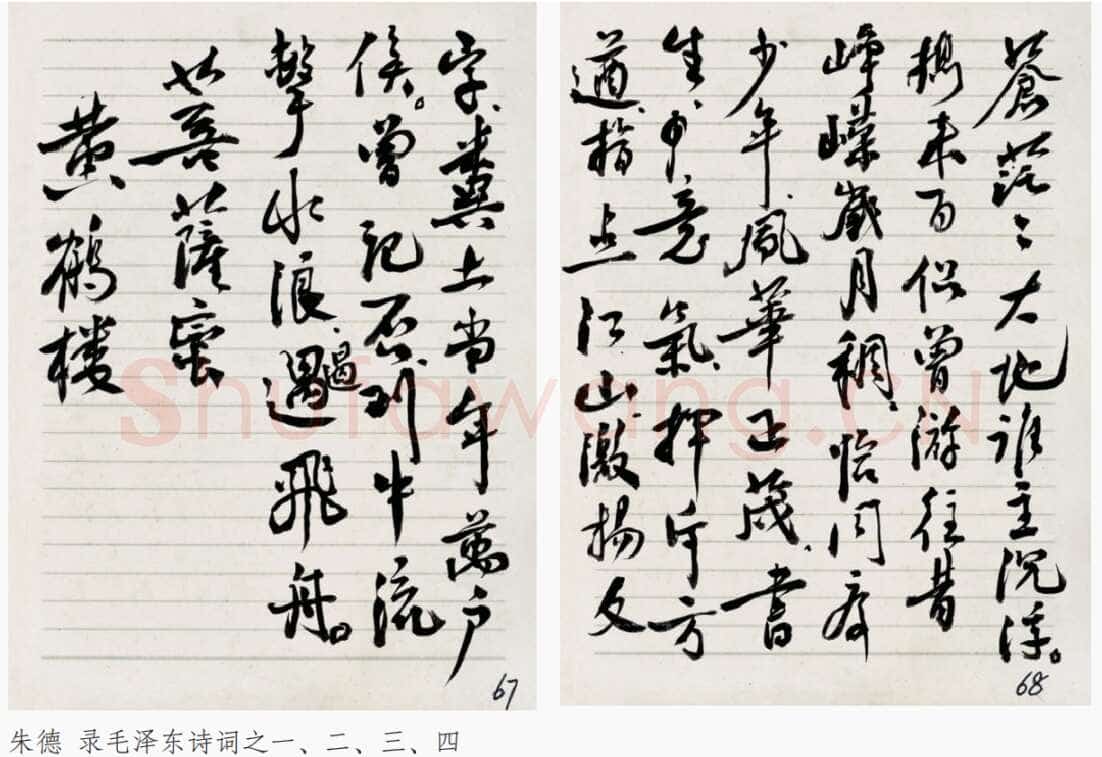 蒼茫々大地谁主沉浮。
携来百侣曾游往昔
峥嶸歲月稠、恰同学
少年、風華正茂、書
生意氣、揮斥方
遒、指点江山、激揚文
68
字、糞土当年萬户
侯。曾記否、到中流
擊水、浪遏飛舟。
菩薩蛮
黄鶴楼
67
Shufawang.CN
朱德 录毛泽东诗词之一、二、三、四